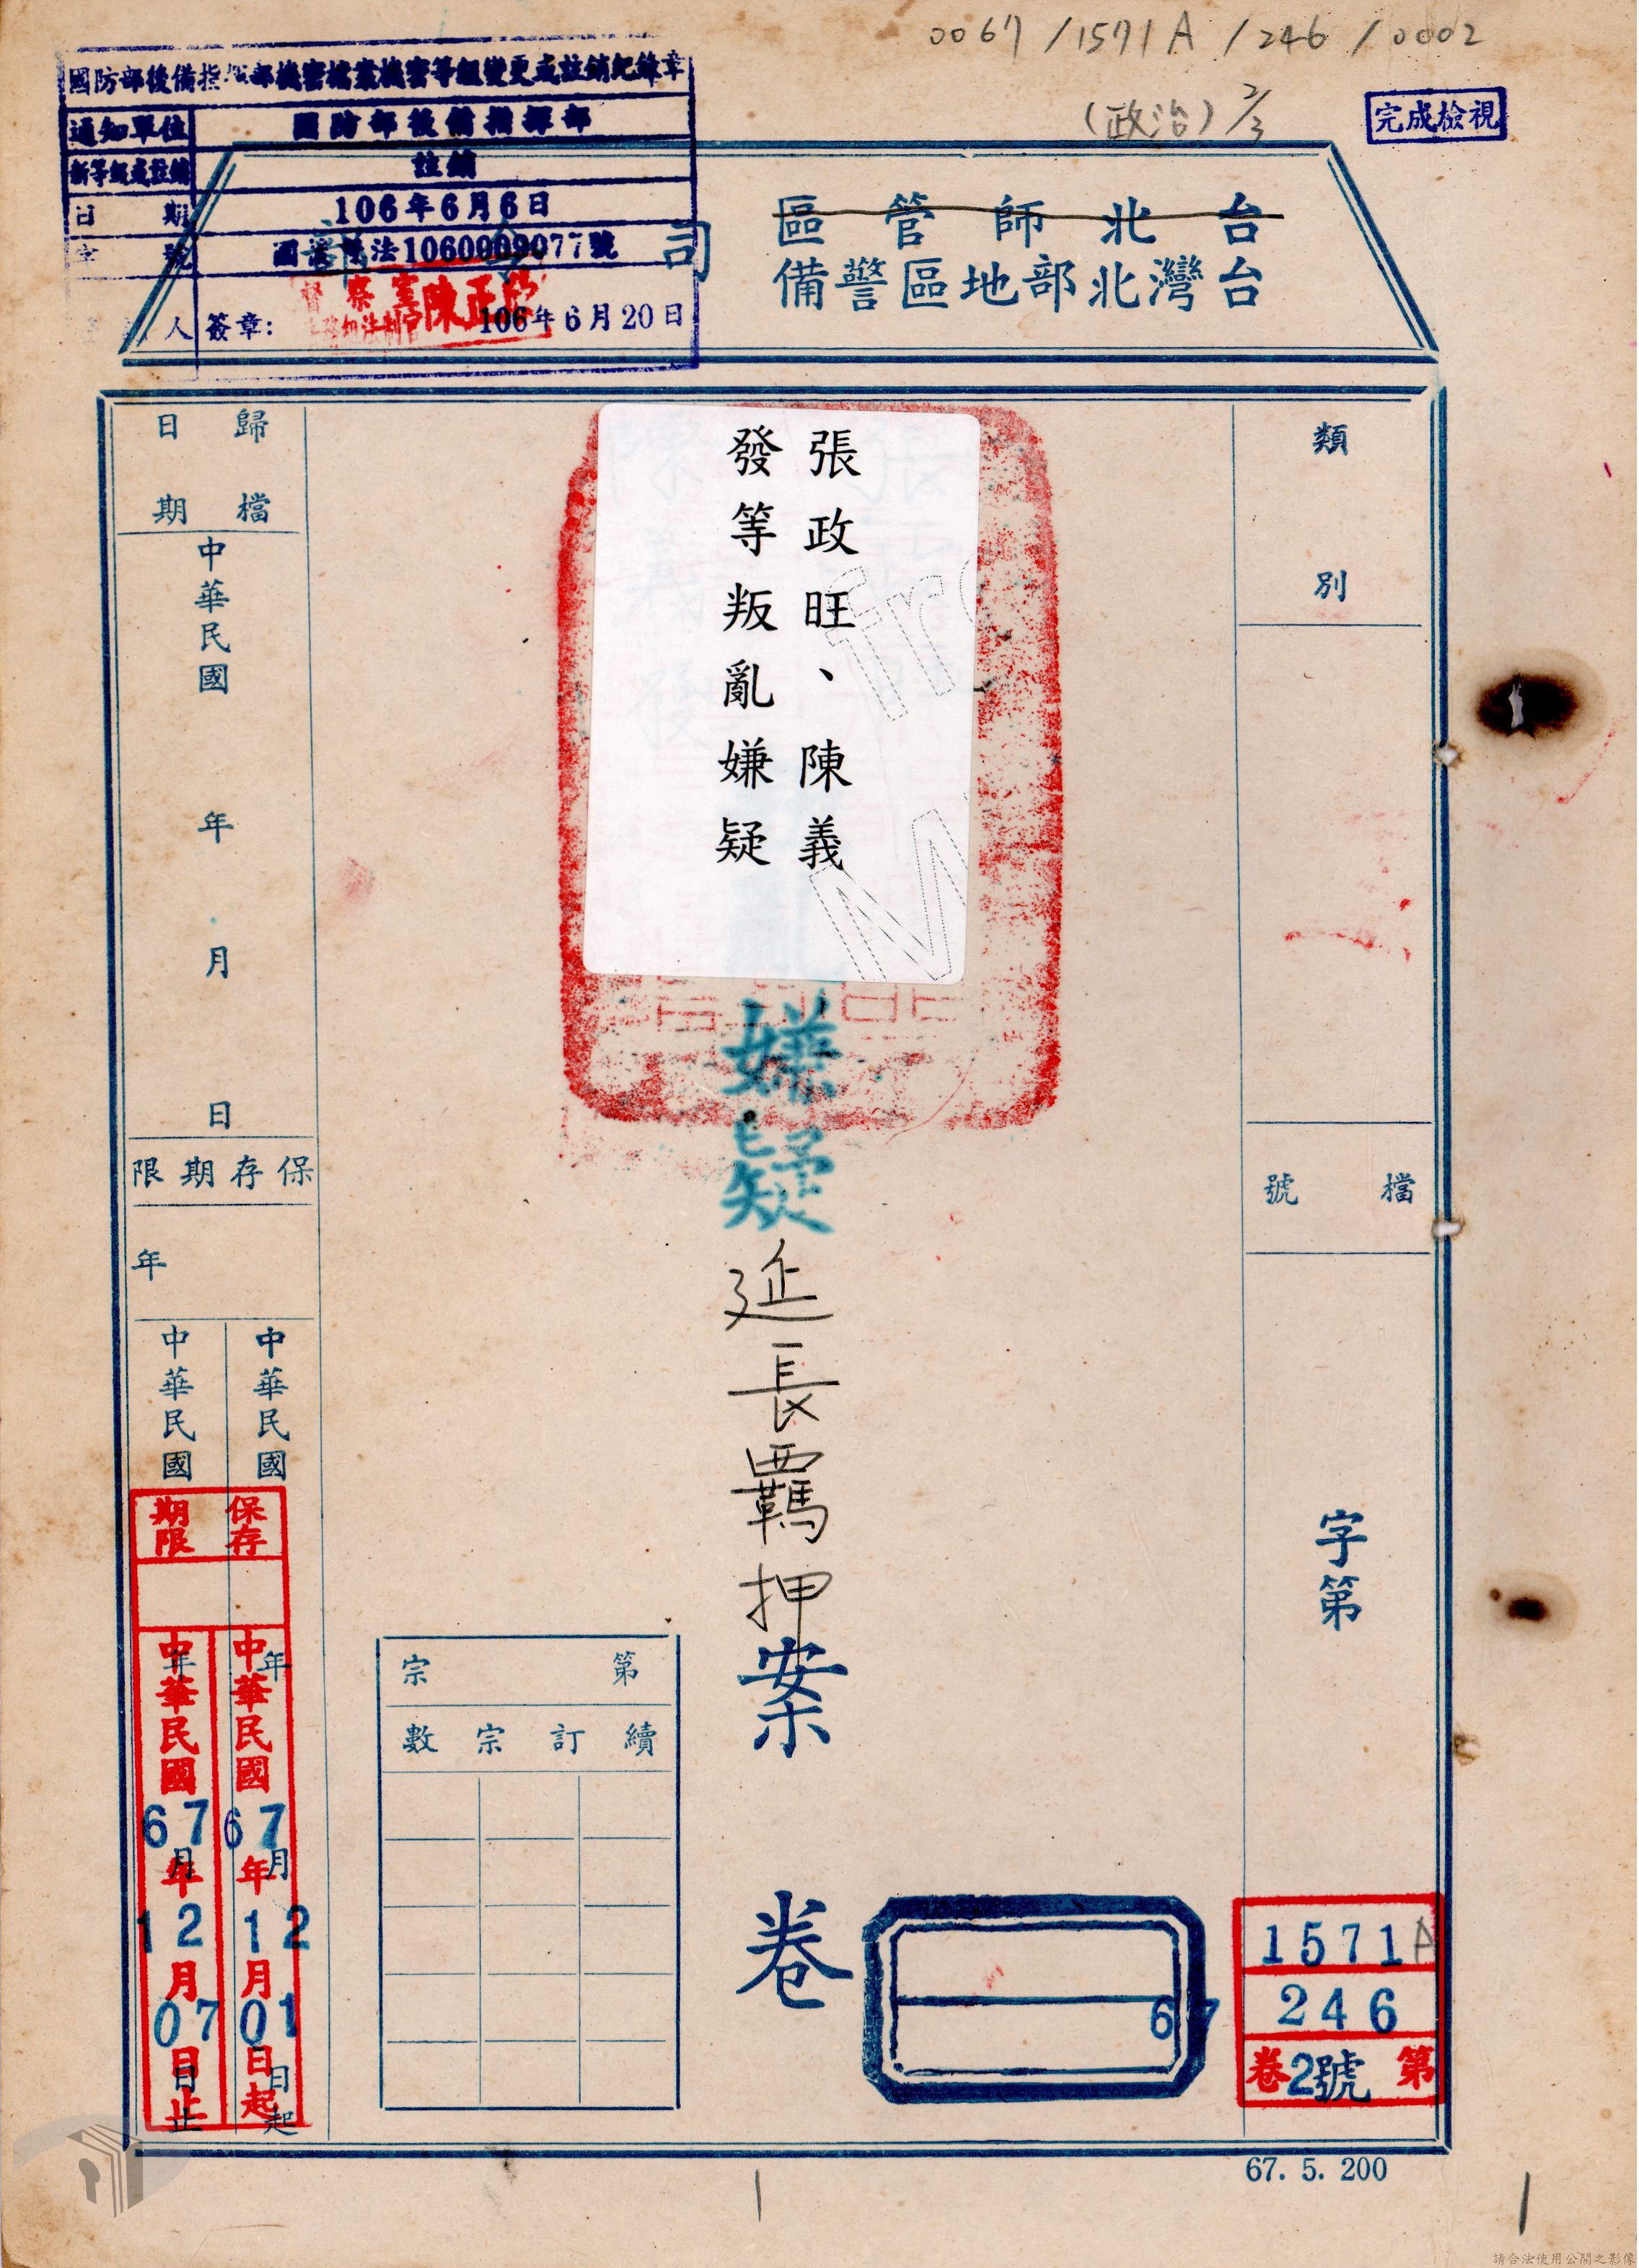 0067/1571A/246/0002
(政治)2/3
完成檢視
國防部後備指揮部機密檔案機密等級變更或註銷紀錄章
通知單位 國防部後備指揮部
新等級或註銷 註銷
日期 106年6月6日
字號 法1060009077號
人 簽章: 陳正 106年6月20日
台北師管區
台灣北部地區警備
司
類別
檔號
字第
1571A
246
第2號卷
張政旺、陳義
發等叛亂嫌疑
嫌疑延長羈押案卷
67
第宗
續訂宗數
歸檔日期
中華民國 年 月 日
保存期限
年
中華民國 年 月 日起
中華民國 年 月 日止
保存期限
中華民國67年12月01日起
中華民國67年12月07日止
67.5.200
請合法使用公開之影像